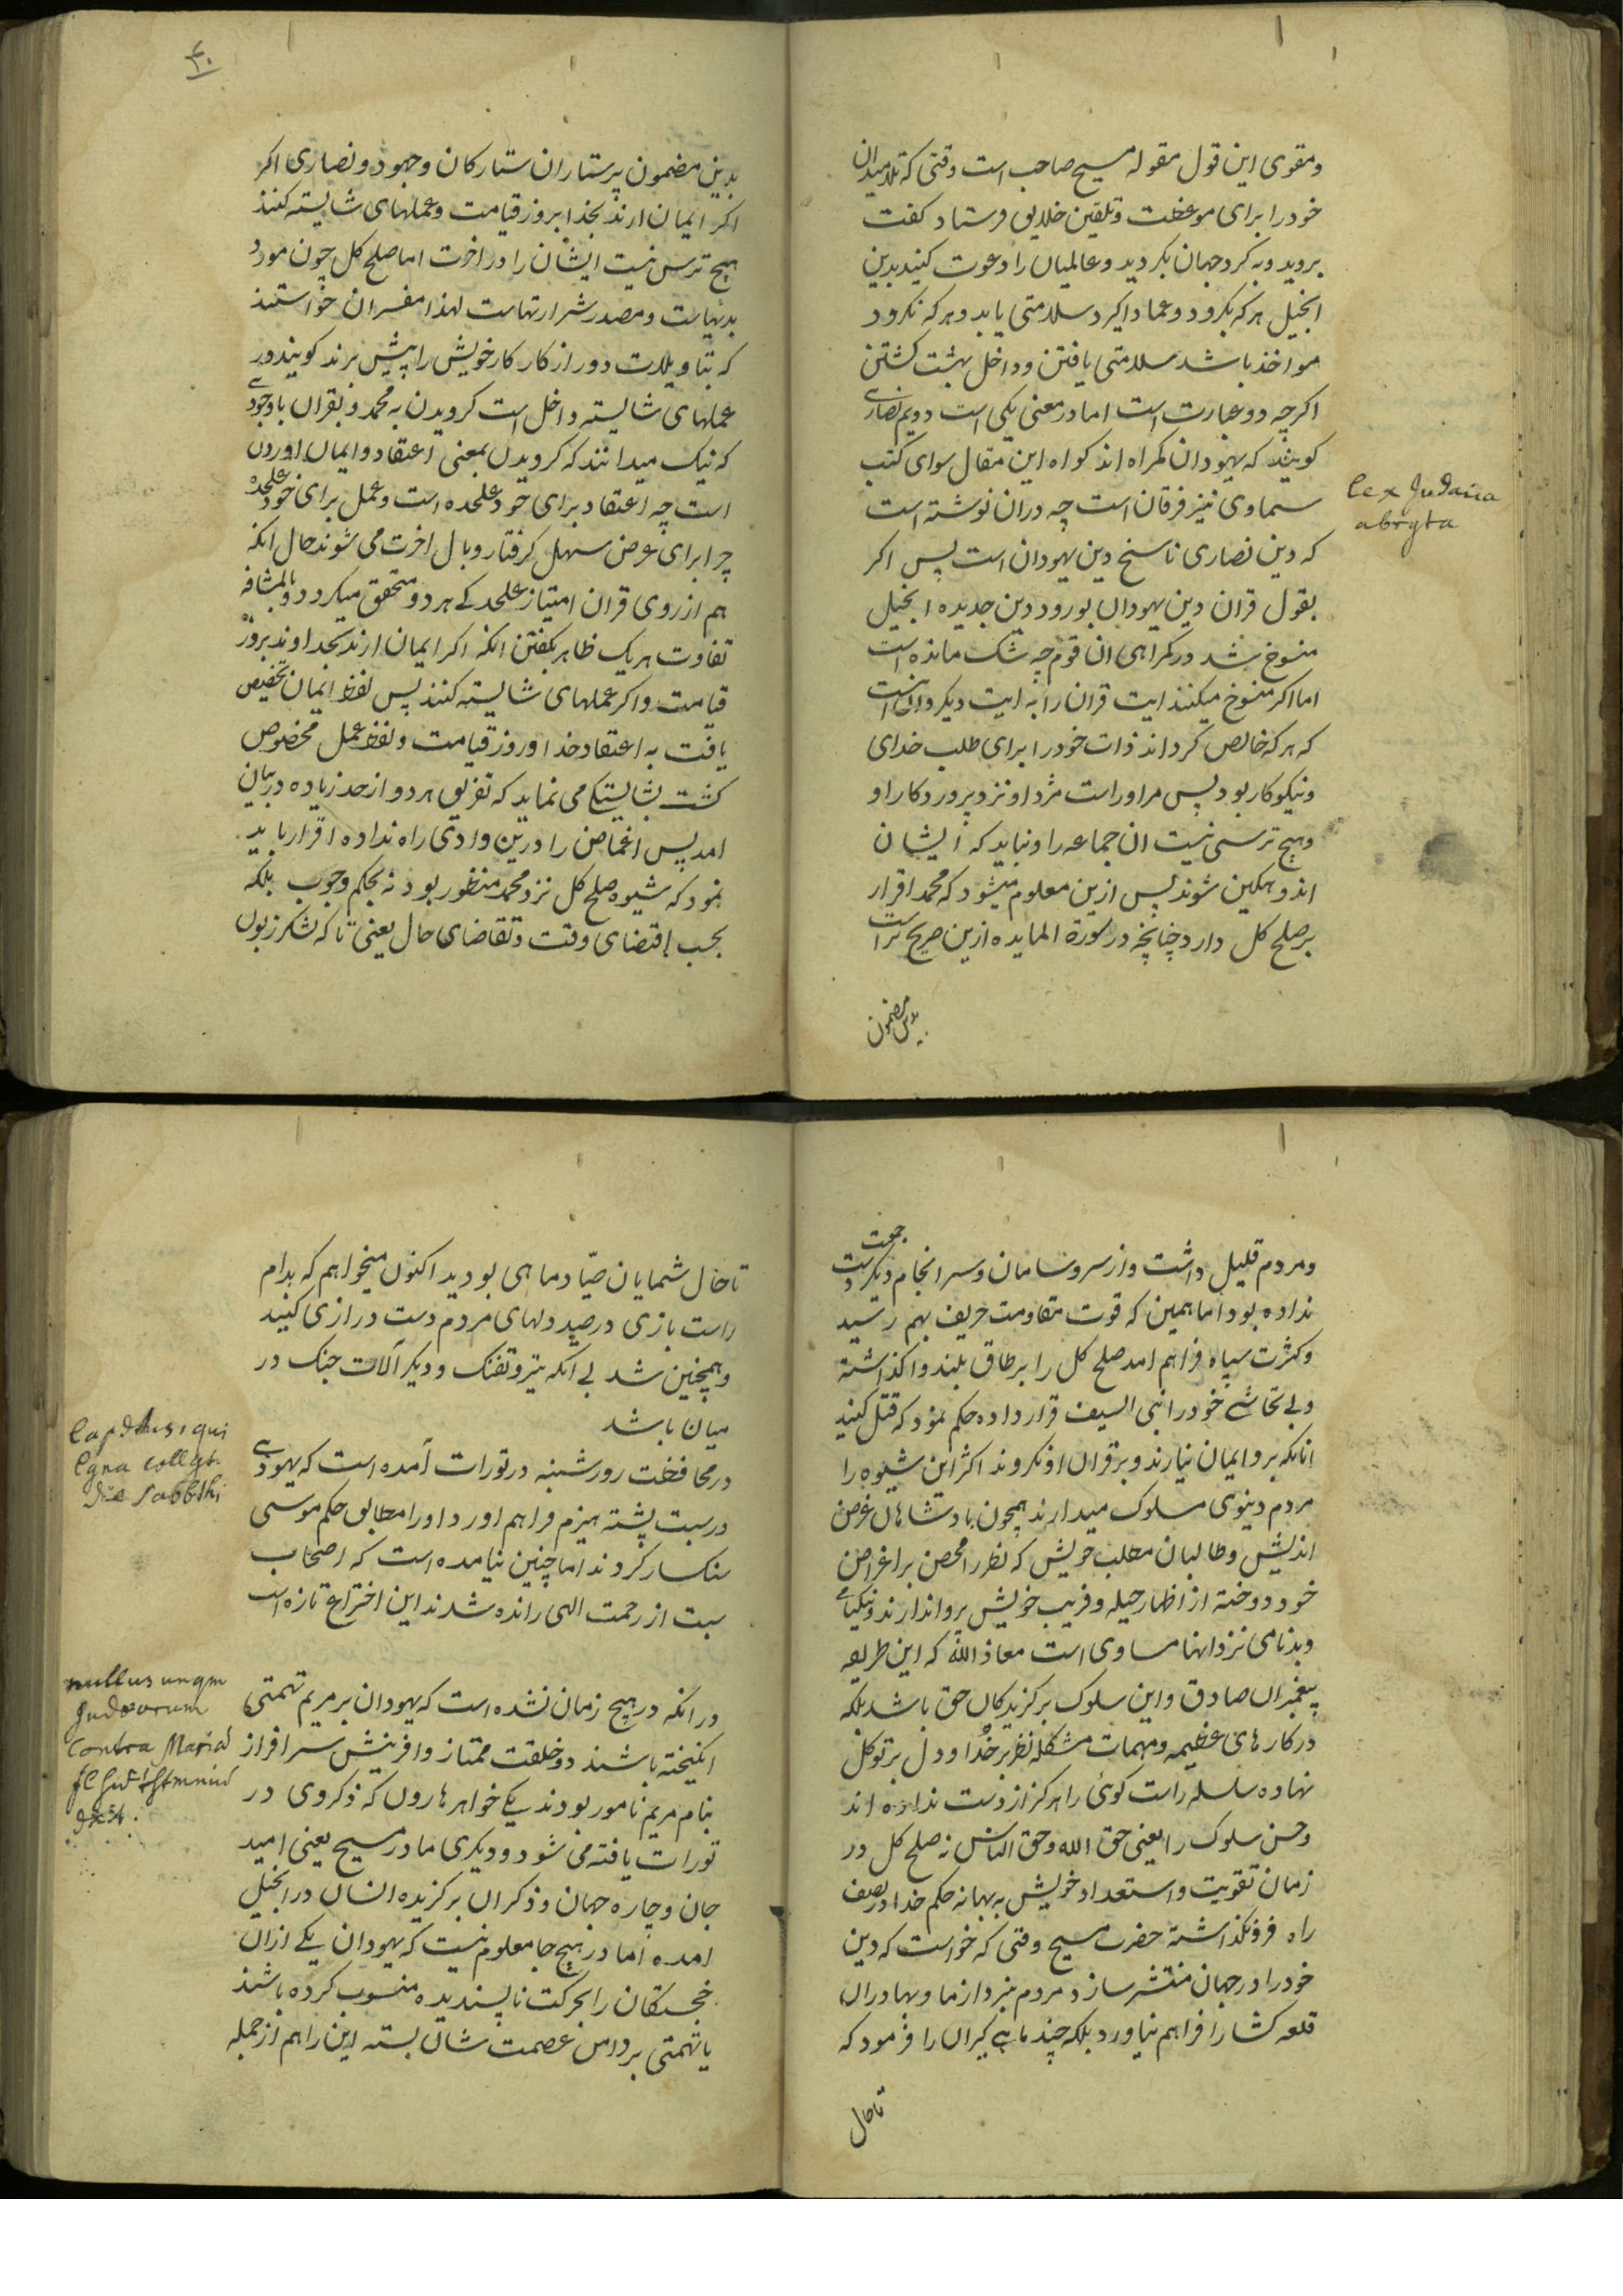 ومقوی این قول مقوله مسیح صاحب است وقتی که تلامیدان
خودرا برای موعظت وتلقین خلایق فرستاد کفت
بروید وبه کرد جهان بکردید وعالمیان را دعوت کنید بدین
انجیل هرکه بکرود وعماد اکیرد سلامتی یابد وهرکه نکرود
مواخذ باشد سلامتی یافتن وداخل بهشت کشتن
اکرچه دو عبارت است اما در معنی یکی است دویم نصاری
کویند که یهودان کمراه اند کواه این مقال سوای کتب
سماوی نیز فرقان است چه دران نوشته است
که دین نصاری ناسخ دین یهودان است پس اکر
بقول قران دین یهودان بورود دین جدیده انجیل
منسوخ شد در کمراهی ان قوم چه شک مانده است
اما اکر منسوخ میکنند ایت قران را به ایت دیکر وان اینست
که هرکه خالص کرداند ذات خودرا برای طلب خدای
ونیکوکار بود پس مراوراست مژد او نزد پروردکار او
وهیچ ترسی نیست ان جماعه را ونباید که ایشان
اندوهکین شوند پس ازین معلوم میشود که محمد اقرار
بر صلح کل دارد چنانچه در سورة المایده ازین صریح تر است
بدین مضمون
lex Judaica
abrgta
۴۰
بدین مضمون پرستاران ستارکان وجهود ونصاری اکر
اکر ایمان ارند بخدا بروز قیامت وعملهای شایسته کنند
هیچ ترس نیست ایشان را در اخرت اما صلح کل چون مورد
بدیهاست ومصدر شرارتهاست لهذا مفسران خواستند
که بتاویلات دور از کار کار خویش را پیش برند کویند در
عملهای شایسته داخل است کرویدن به محمد وبقران باوجودی
که نیک میدانند که کرویدن بمعنی اعتقاد وایمان اوردن
است چه اعتقاد برای خود علحده است وعمل برای خود علحده
چرا برای غرض سهل کرفتار وبال اخرت می شوند حال انکه
هم از روی قران امتیاز علحدکی هردو متحقق میکردد وبالمشافه
تفاوت هریک ظاهر بکفتن انکه اکر ایمان ارند بخداوند بروز
قیامت واکر عملهای شایسته کنند پس لفظ ایمان تخصیص
یافت به اعتقاد خدا وروز قیامت ولفظ عمل مخصوص
کشت بشایستکی می نماید که تفریق هردو از حد زیاده در بیان
امد پس اغماض را درین وادی راه نداده اقرار باید
نمود که شیوه صلح کل نزد محمد منظور بود نه بحکم وجوب بلکه
بحسب اقتضای وقت وتقاضای حال یعنی تا که لشکر زبون
ومردم قلیل داشت واز سر وسامان وسرانجام دیکر جمعیت دست
نداده بود اما همین که قوت مقاومت حریف بهم رسید
وکثرت سپاه فراهم امد صلح کل را بر طاق بلند واکذاشته
وبی تحاشی خودرا نبی السیف قرار داده حکم نمود که قتل کنید
انانکه برو ایمان نیارند وبر قران او نکروند اکثر این شیوه را
مردم دنیوی مسلوک میدارند همچون بادشاهان غرض
اندیش وطالبان مطلب خویش که نظر را محض بر اغراض
خود دوخته از اظهار حیله وفریب خویش پروا ندارند ونیکنامی
وبدنامی نزد انها مساوی است معاذ الله که این طریقه
پیغمبران صادق واین سلوک برکزیدکان حق باشد بلکه
در کارهای عظیمه ومهمات مشکله نظر بر خدا ودل بر توکل
نهاده سلسله راست کوئی را هرکز از دست نداده اند
وحسن سلوک را یعنی حق الله وحق الناس نه صلح کل در
زمان تقویت واستعداد خویش به بهانه حکم خدا در نصف
راه فرونکذاشته حضرت مسیح وقتی که خواست که دین
خودرا در جهان منتشر سازد مردم نبردازما وبهادران
قلعه کشا را فراهم نیاورد بلکه چند ماهی کیران را فرمود که
تا حال
تا حال شمایان صیّاد ماهی بودید اکنون میخواهم که بدام
راست بازی در صید دلهای مردم دست درازی کنید
وهمچنین شد بی انکه تیر وتفنک ودیکر آلات جنک در
میان باشد
در محافظت روز شنبه در تورات آمده است که یهودی
در سبت پشته هیزم فراهم اورد اورا مطابق حکم موسی
سنکسار کردند اما چنین نیامده است که اصحاب
سبت از رحمت الهی رانده شدند این اختراع تازه است
در انکه در هیچ زمان نشده است که یهودان بر مریم تهمتی
انکیخته باشند دو خلقت ممتاز وافرینش سرافراز
بنام مریم نامور بودند یکی خواهر هارون که ذکر وی در
تورات یافته می شود ودیکری مادر مسیح یعنی امید
جان وچاره جهان وذکر ان برکزیده انسان در انجیل
امده اما در هیچ جا معلوم نیست که یهودان یکی ازان
خجستکان را بحرکت ناپسندیده منسوب کرده باشند
یا تهمتی بر دامن عصمت شان بسته این را هم از جمله
qui
lgna collgt.
die sabbthi
nullus unqm
Judæorum
contra Mariā